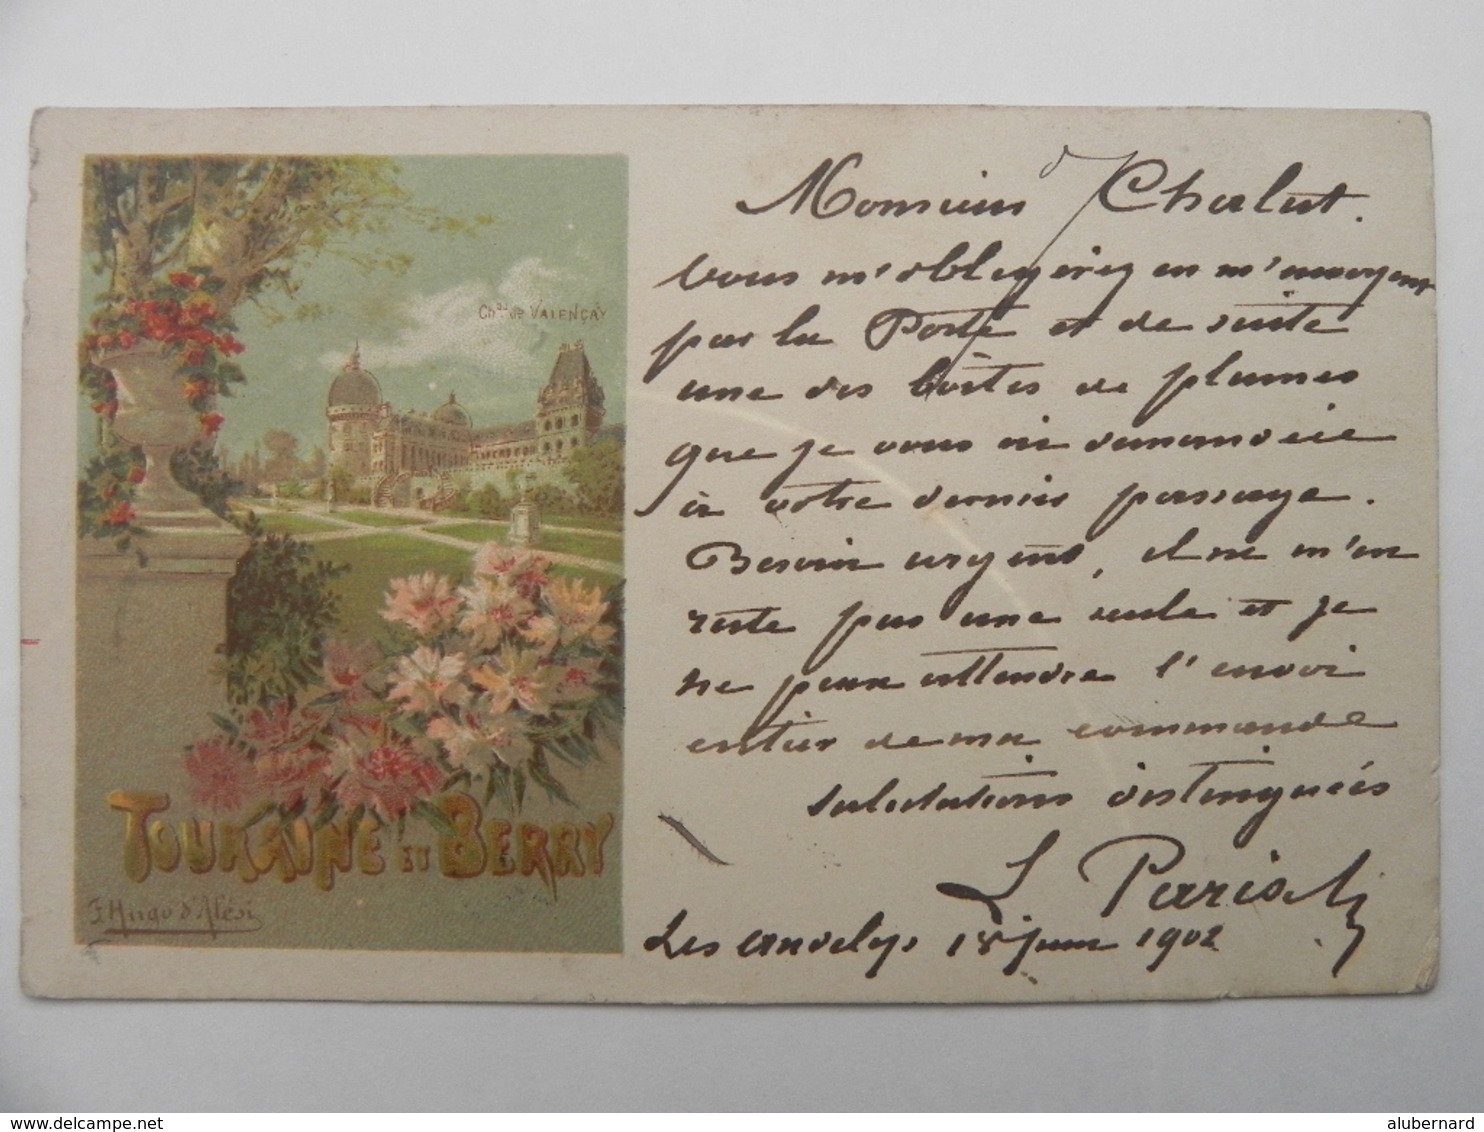 Chau de VALENÇAY
TOURAINE ET BERRY
F. Hugo d'Alési
Monsieur Chalut.
Vous m'obligeriez en m'envoyant
par la Poste et de suite
une des boîtes de plumes
que je vous ai demandée
à votre dernier passage.
Besoin urgent, il ne m'en
reste pas une seule et je
ne peux attendre l'envoi
entier de ma commande
Salutations distinguées
L Paris
Les Andelys 18 juin 1902
delcampe.net
alubernard